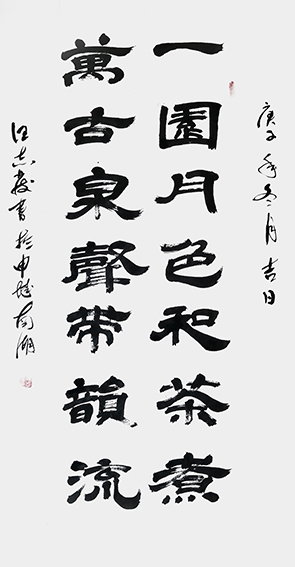 庚子年冬月吉日
一園月色和茶煮
萬古泉聲带韻流
江志發書於申城南湖